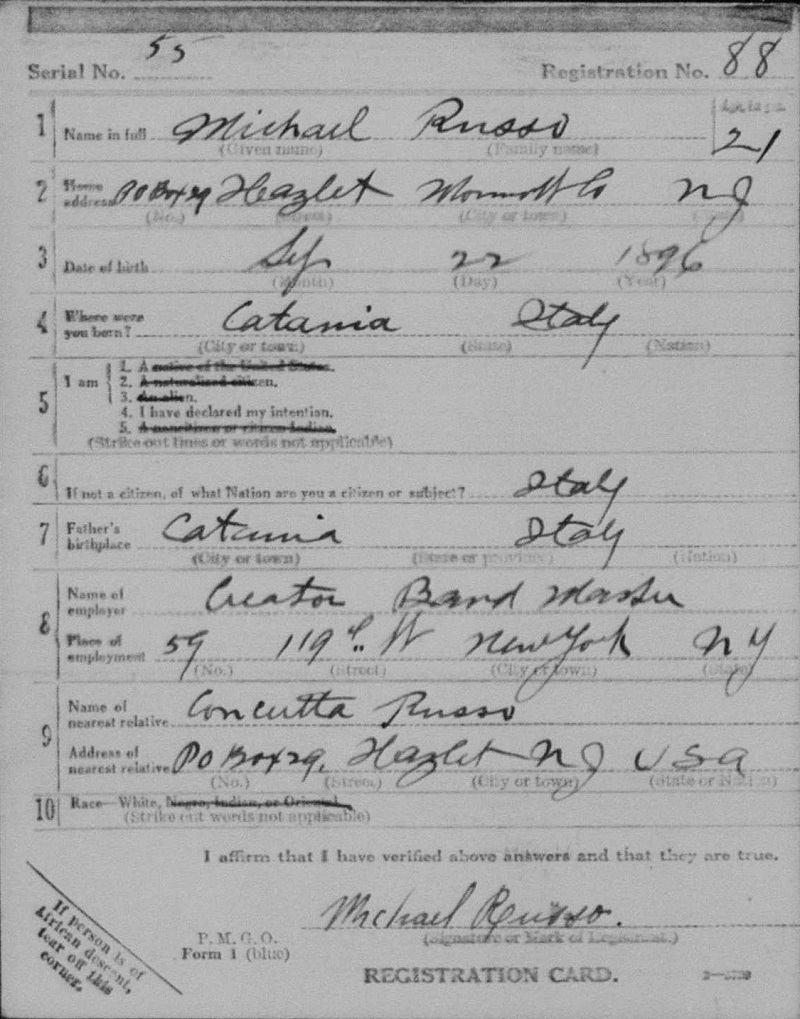 Serial No. 55 Registration No. 88
1 Name in full Michael Russo 21
(Given name) (Family name)
2 Home address PO Box 29 Hazlet Monmott Co N J
(No.) (Street) (City or town) (State)
3 Date of birth Sep 22 1896
(Month) (Day) (Year)
4 Where were you born? Catania Italy
(City or town) (State) (Nation)
5 I am
1. A native of the United States.
2. A naturalized citizen.
3. An alien.
4. I have declared my intention.
5. A noncitizen or citizen Indian.
(Strike out lines or words not applicable)
6 If not a citizen, of what Nation are you a citizen or subject? Italy
7 Father's birthplace Catania Italy
(City or town) (State or province) (Nation)
8 Name of employer Creator Band Master
Place of employment 59 119th W New York N Y
(No.) (Street) (City or town) (State)
9 Name of nearest relative Concutta Russo
Address of nearest relative PO Box 29, Hazlet N J U S A
(No.) (Street) (City or town) (State or Nation)
10 Race—White, Negro, Indian, or Oriental
(Strike out words not applicable)
I affirm that I have verified above answers and that they are true.
Michael Russo.
(Signature or Mark of Registrant.)
P. M. G. O.
Form 1 (blue)
REGISTRATION CARD.
If person is of
African descent,
tear off this
corner.